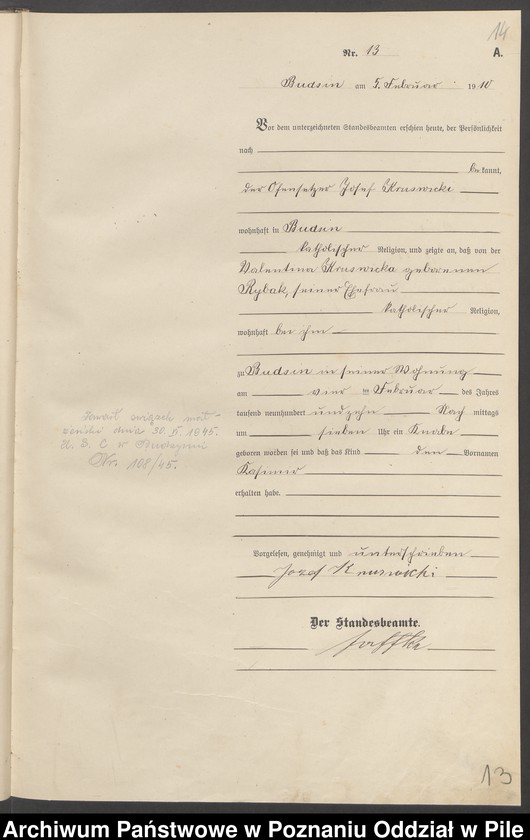 14
Nr. 13 A.
Budsin am 5. Februar 1910
Vor dem unterzeichneten Standesbeamten erschien heute, der Persönlichkeit
nach
bekannt,
der Ofensetzer Josef Kruswicki
wohnhaft in Budsin
katholischer Religion, und zeigte an, daß von der
Valentina Kruswicka geborenen
Rybak, seiner Ehefrau
katholischer Religion,
wohnhaft bei ihm
zu Budsin in seiner Wohnung
am vier ten Februar des Jahres
tausend neunhundert undzehn Nach mittags
um sieben Uhr ein Knabe
geboren worden sei und daß das Kind den Vornamen
Kasimir
erhalten habe.
Vorgelesen, genehmigt und unterschrieben
Jozef Kruswicki
Der Standesbeamte.
Zawarł związek mał-
żeński dnia 30.5.1945.
U. S. C w Budzyniu
Nr. 108/45.
13
Archiwum Państwowe w Poznaniu Oddział w Pile